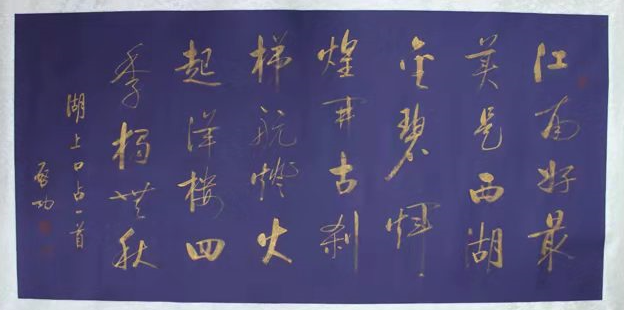 江南好最
美是西湖
金碧煇
煌开古刹
梯航燈火
起洋樓四
季獨無秋
湖上口占一首
啓功